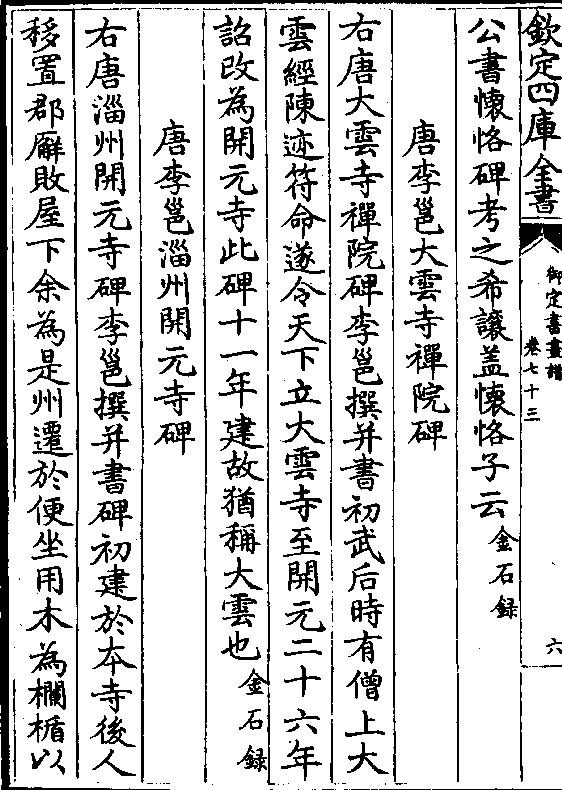 欽定四庫全書
御定書畫譜
卷七十三
六
公書懷恪碑考之希讓盖懷恪子云金石録
唐李邕大雲寺禪院碑
右唐大雲寺禪院碑李邕撰并書初武后時有僧上大
雲經陳迹符命遂令天下立大雲寺至開元二十六年
詔改為開元寺此碑十一年建故猶稱大雲也金石録
唐李邕淄州開元寺碑
右唐淄州開元寺碑李邕撰并書碑初建於本寺後人
移置郡廨敗屋下余為是州遷於便坐用木為欄楯以